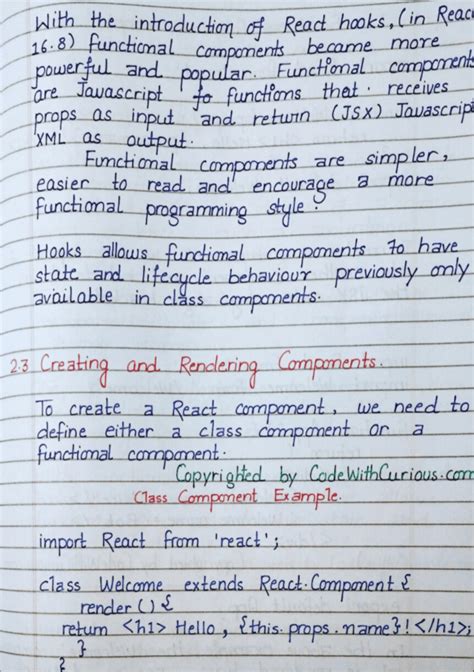 With the introduction of React hooks, (in Reac
16.8) functional components became more
powerful and popular. Functional component
are Javascript fo functions that receives
props as input and return (JSX) Javascrip
XML as output.
Functional components are simpler,
easier to read and encourage a more
functional programming style.
Hooks allows functional components to have
state and lifecycle behaviour previously only
available in class components.
2.3 Creating and Rendering Components.
To create a React component, we need to
define either a class component or a
functional component.
Copyrighted by CodeWithCurious.com
Class Component Example.
import React from 'react';
class Welcome extends React.Component {
render () {
return <h1> Hello, {this.props.name}! </h1>;
}
}